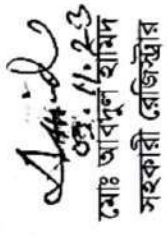 ০৭.১১.২৩
মোঃ আবদুল হামিদ
সহকারী রেজিস্ট্রার